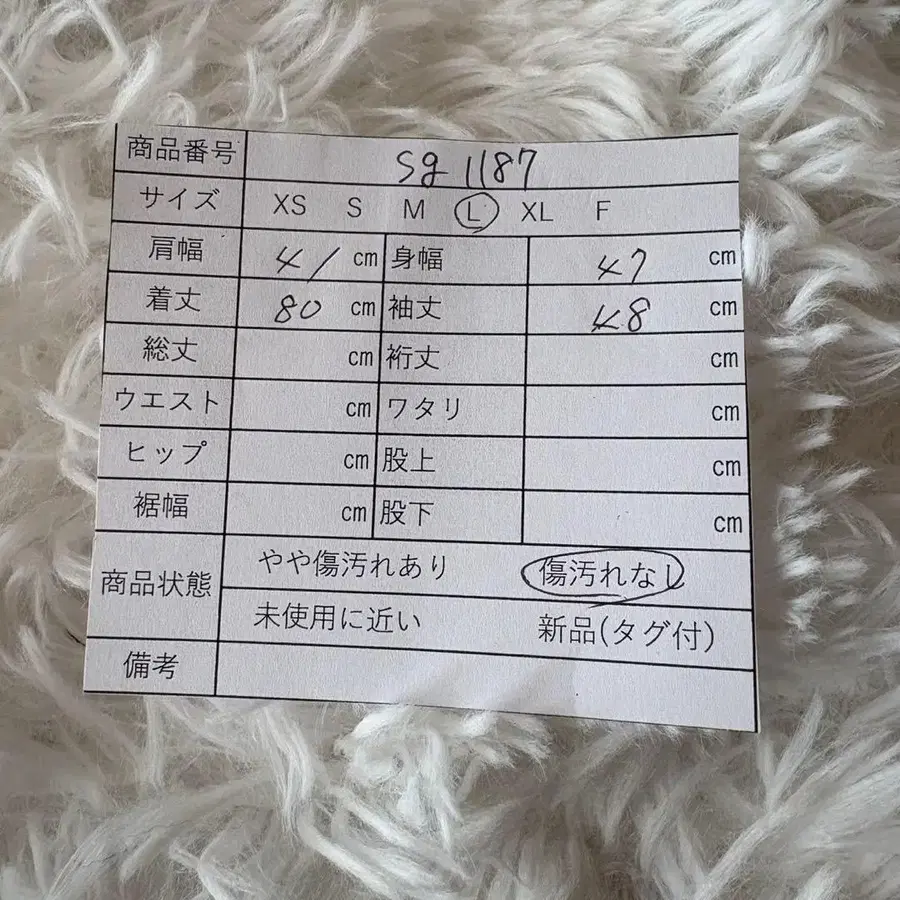 商品番号 sg 1187
サイズ XS S M L XL F
肩幅 41 cm 身幅 47 cm
着丈 80 cm 袖丈 48 cm
総丈 cm 裄丈 cm
ウエスト cm ワタリ cm
ヒップ cm 股上 cm
裾幅 cm 股下 cm
商品状態 やや傷汚れあり 傷汚れなし
未使用に近い 新品(タグ付)
備考